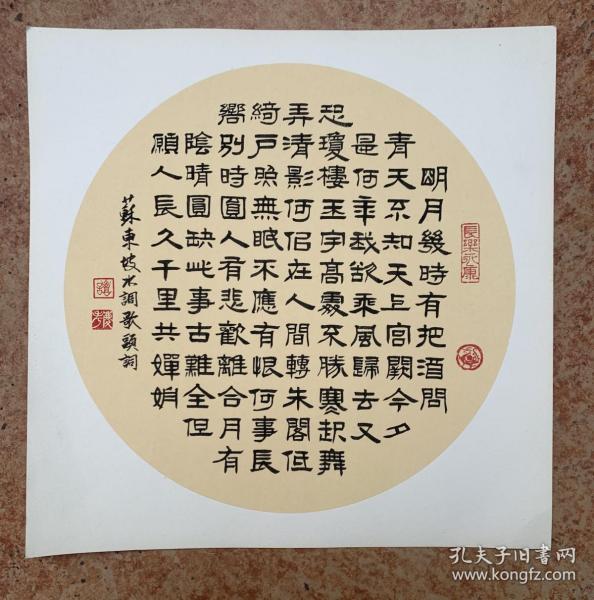 明月幾時有把酒問
青天不知天上宮闕今夕
是何年我欲乘風歸去又
恐瓊樓玉宇高處不勝寒起舞
弄清影何佀在人間轉朱閣低
綺戶照無眠不應有恨何事長
嚮別時圓人有悲歡離合月有
陰晴圓缺此事古難全但
願人長久千里共嬋娟
蘇東坡水調歌頭詞
長樂永康
孔夫子旧書网
www.kongfz.com